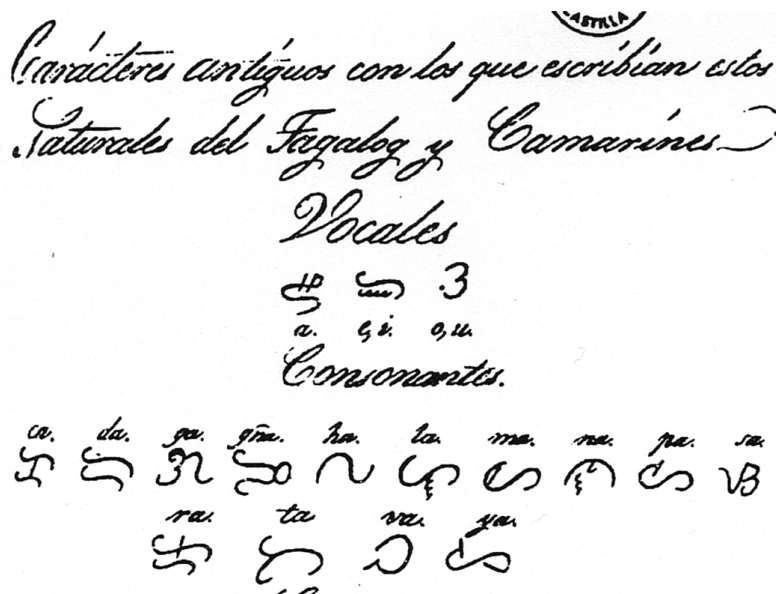 CASTILLA
Carácteres antíguos con los que escribían estos
Naturales del Tagalog y Camarínes
Vocales
ᜀ ᜁ ᜂ
a. e,i. o,u.
Consonantes.
ca. da. ga. gña. ha. la. ma. na. pa. sa.
ᜃ ᜇ ᜄ ᜅ ᜑ ᜎ ᜋ ᜈ ᜉ ᜐ
ra. ta va. ya.
ᜍ ᜆ ᜏ ᜌ